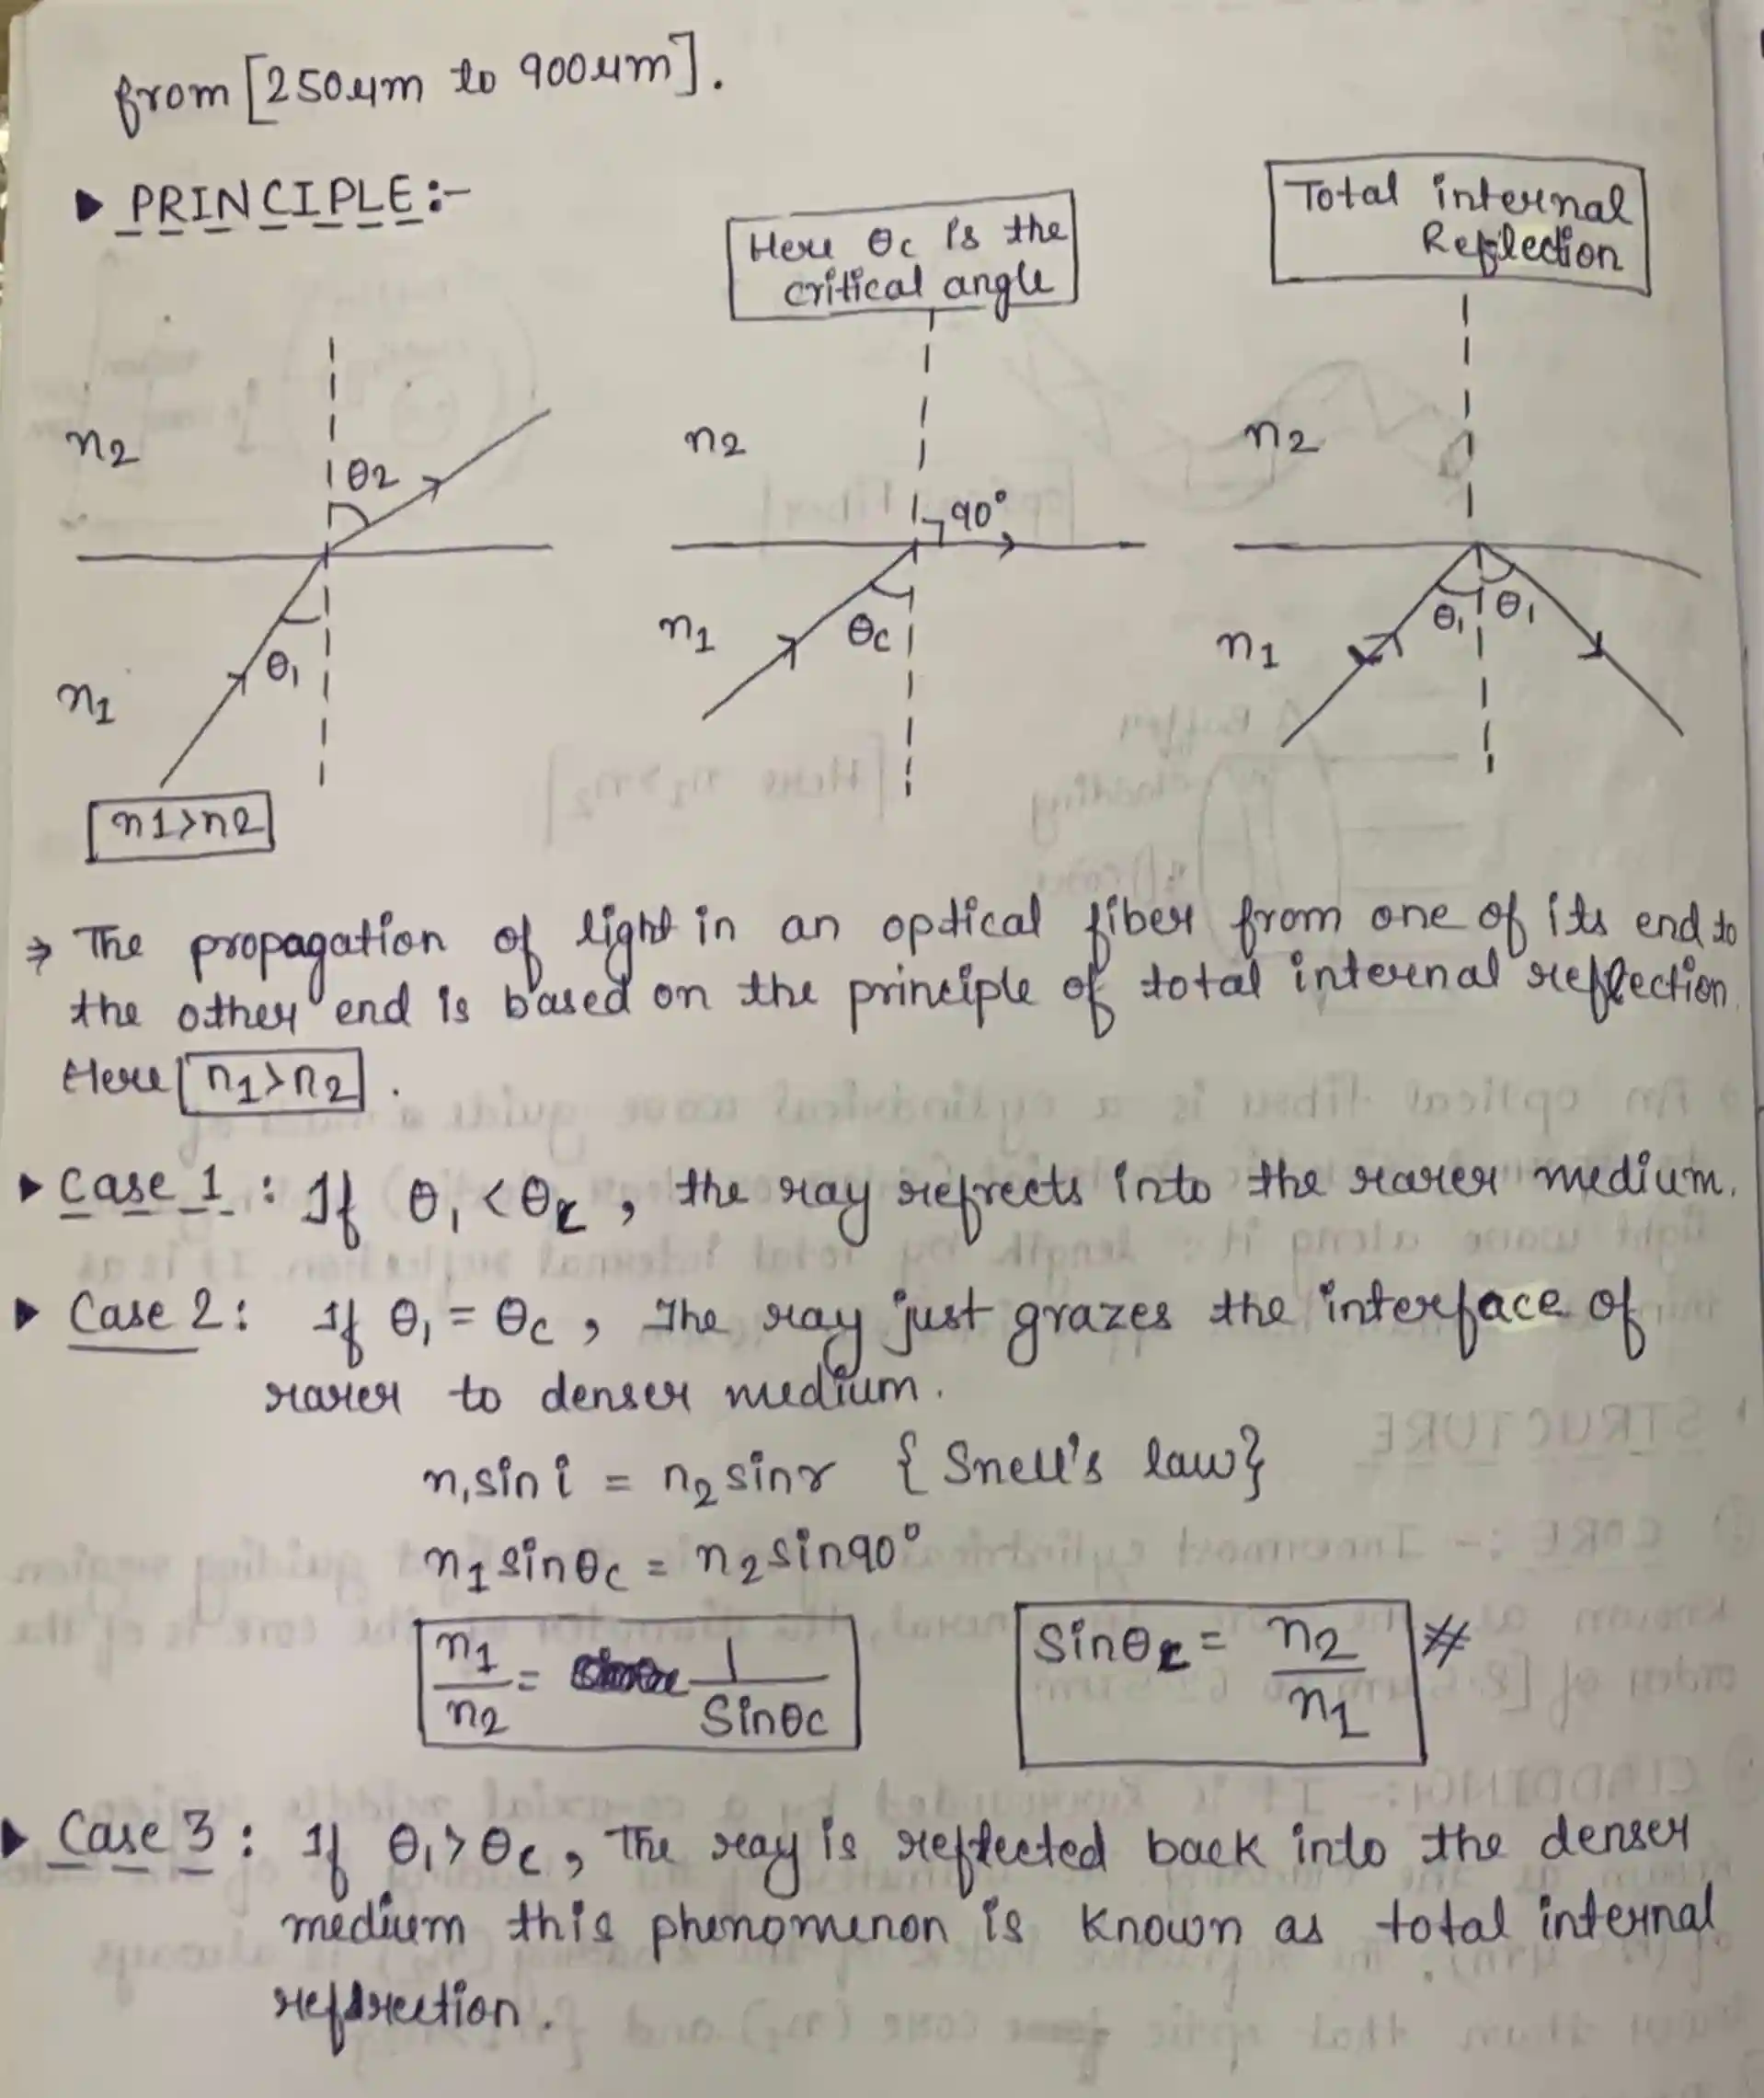 from [250μm to 900μm].
▶ PRINCIPLE:-
Here θc is the
critical angle
Total internal
Reflection
n2
θ2
n1
θ1
n1>n2
n2
90°
n1
θc
n2
n1
θ1 θ1
⇒ The propagation of light in an optical fiber from one of its end to
the other end is based on the principle of total internal reflection.
Here [n1>n2].
▶ Case 1 : If θ1 < θc, the ray refrects into the rarer medium.
▶ Case 2 : If θ1 = θc, The ray just grazes the interface of
rarer to denser medium.
n1 sin i = n2 sin r {Snell's law}
n1 sinθc = n2 sin90°
n1/n2 = 1/Sinθc
Sinθc = n2/n1 #
▶ Case 3 : If θ1 > θc, The ray is reflected back into the denser
medium this phenomenon is known as total internal